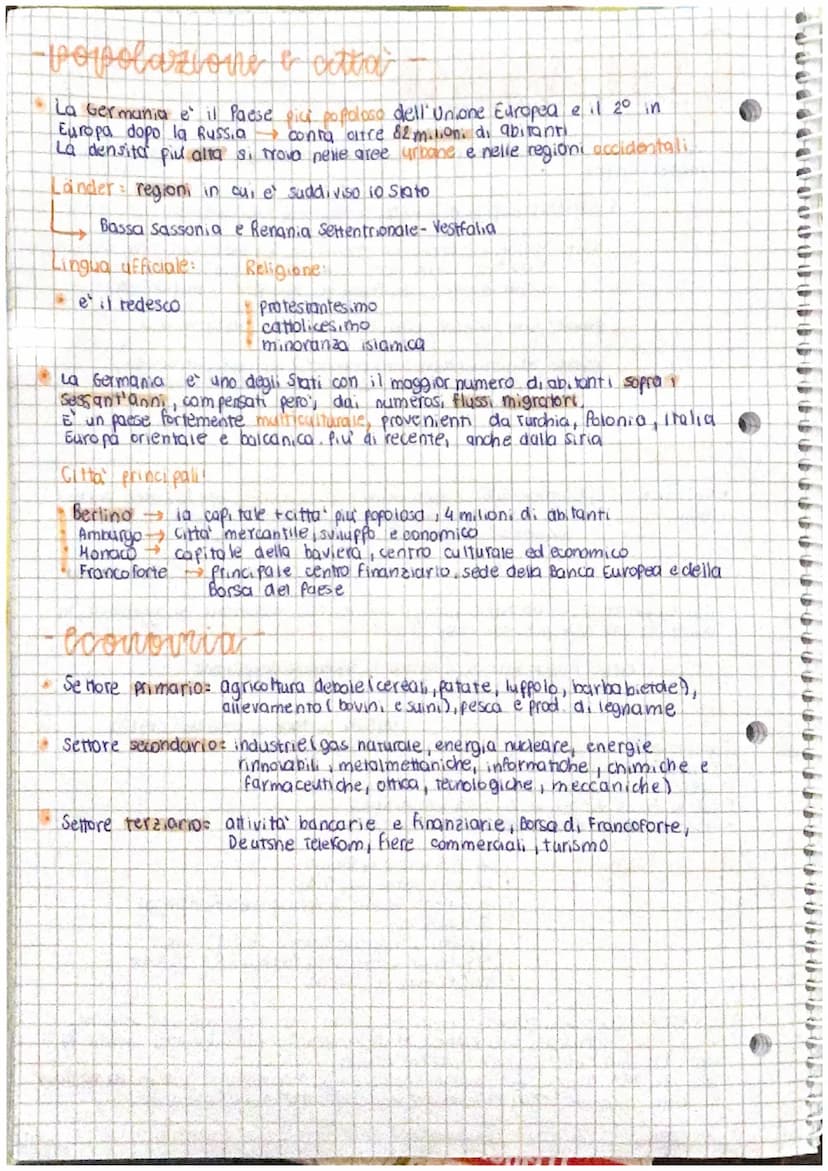 -popolazione e città-
La Germania e' il Paese più popoloso dell'Unione Europea e il 2° in
Europa dopo la Russia → conta oltre 82 milioni di abitanti
La densità più alta si trova nelle aree urbane e nelle regioni occidentali
Länder: regioni in cui e' suddiviso lo Stato
Bassa sassonia e Renania Settentrionale-Vestfalia
Lingua ufficiale: Religione:
e' il tedesco protestantesimo
cattolicesimo
minoranza islamica
La Germania e' uno degli Stati con il maggior numero di abitanti sopra i
sessant'anni, compensati però, dai numerosi flussi migratori.
E' un paese fortemente multiculturale, provenienti da Turchia, Polonia, Italia
Europa orientale e balcanica. Più di recente, anche dalla Siria
Città principali:
Berlino → la capitale + città più popolosa, 4 milioni di abitanti
Amburgo → Città mercantile, sviluppo economico
Monaco → capitale della baviera, centro culturale ed economico
Francoforte → Principale centro finanziario, sede della Banca Europea e della
Borsa del Paese
-economia-
Settore primario: agricoltura debole (cereali, patate, luppolo, barbabietole),
allevamento (bovini e suini), pesca e prod. di legname
Settore secondario: industrie (gas naturale, energia nucleare, energie
rinnovabili, metalmettaniche, informatiche, chimiche e
farmaceutiche, ottica, tecnologiche, meccaniche)
Settore terziario: attività bancarie e finanziarie, Borsa di Francoforte,
Deutshe Telekom, fiere commerciali, turismo